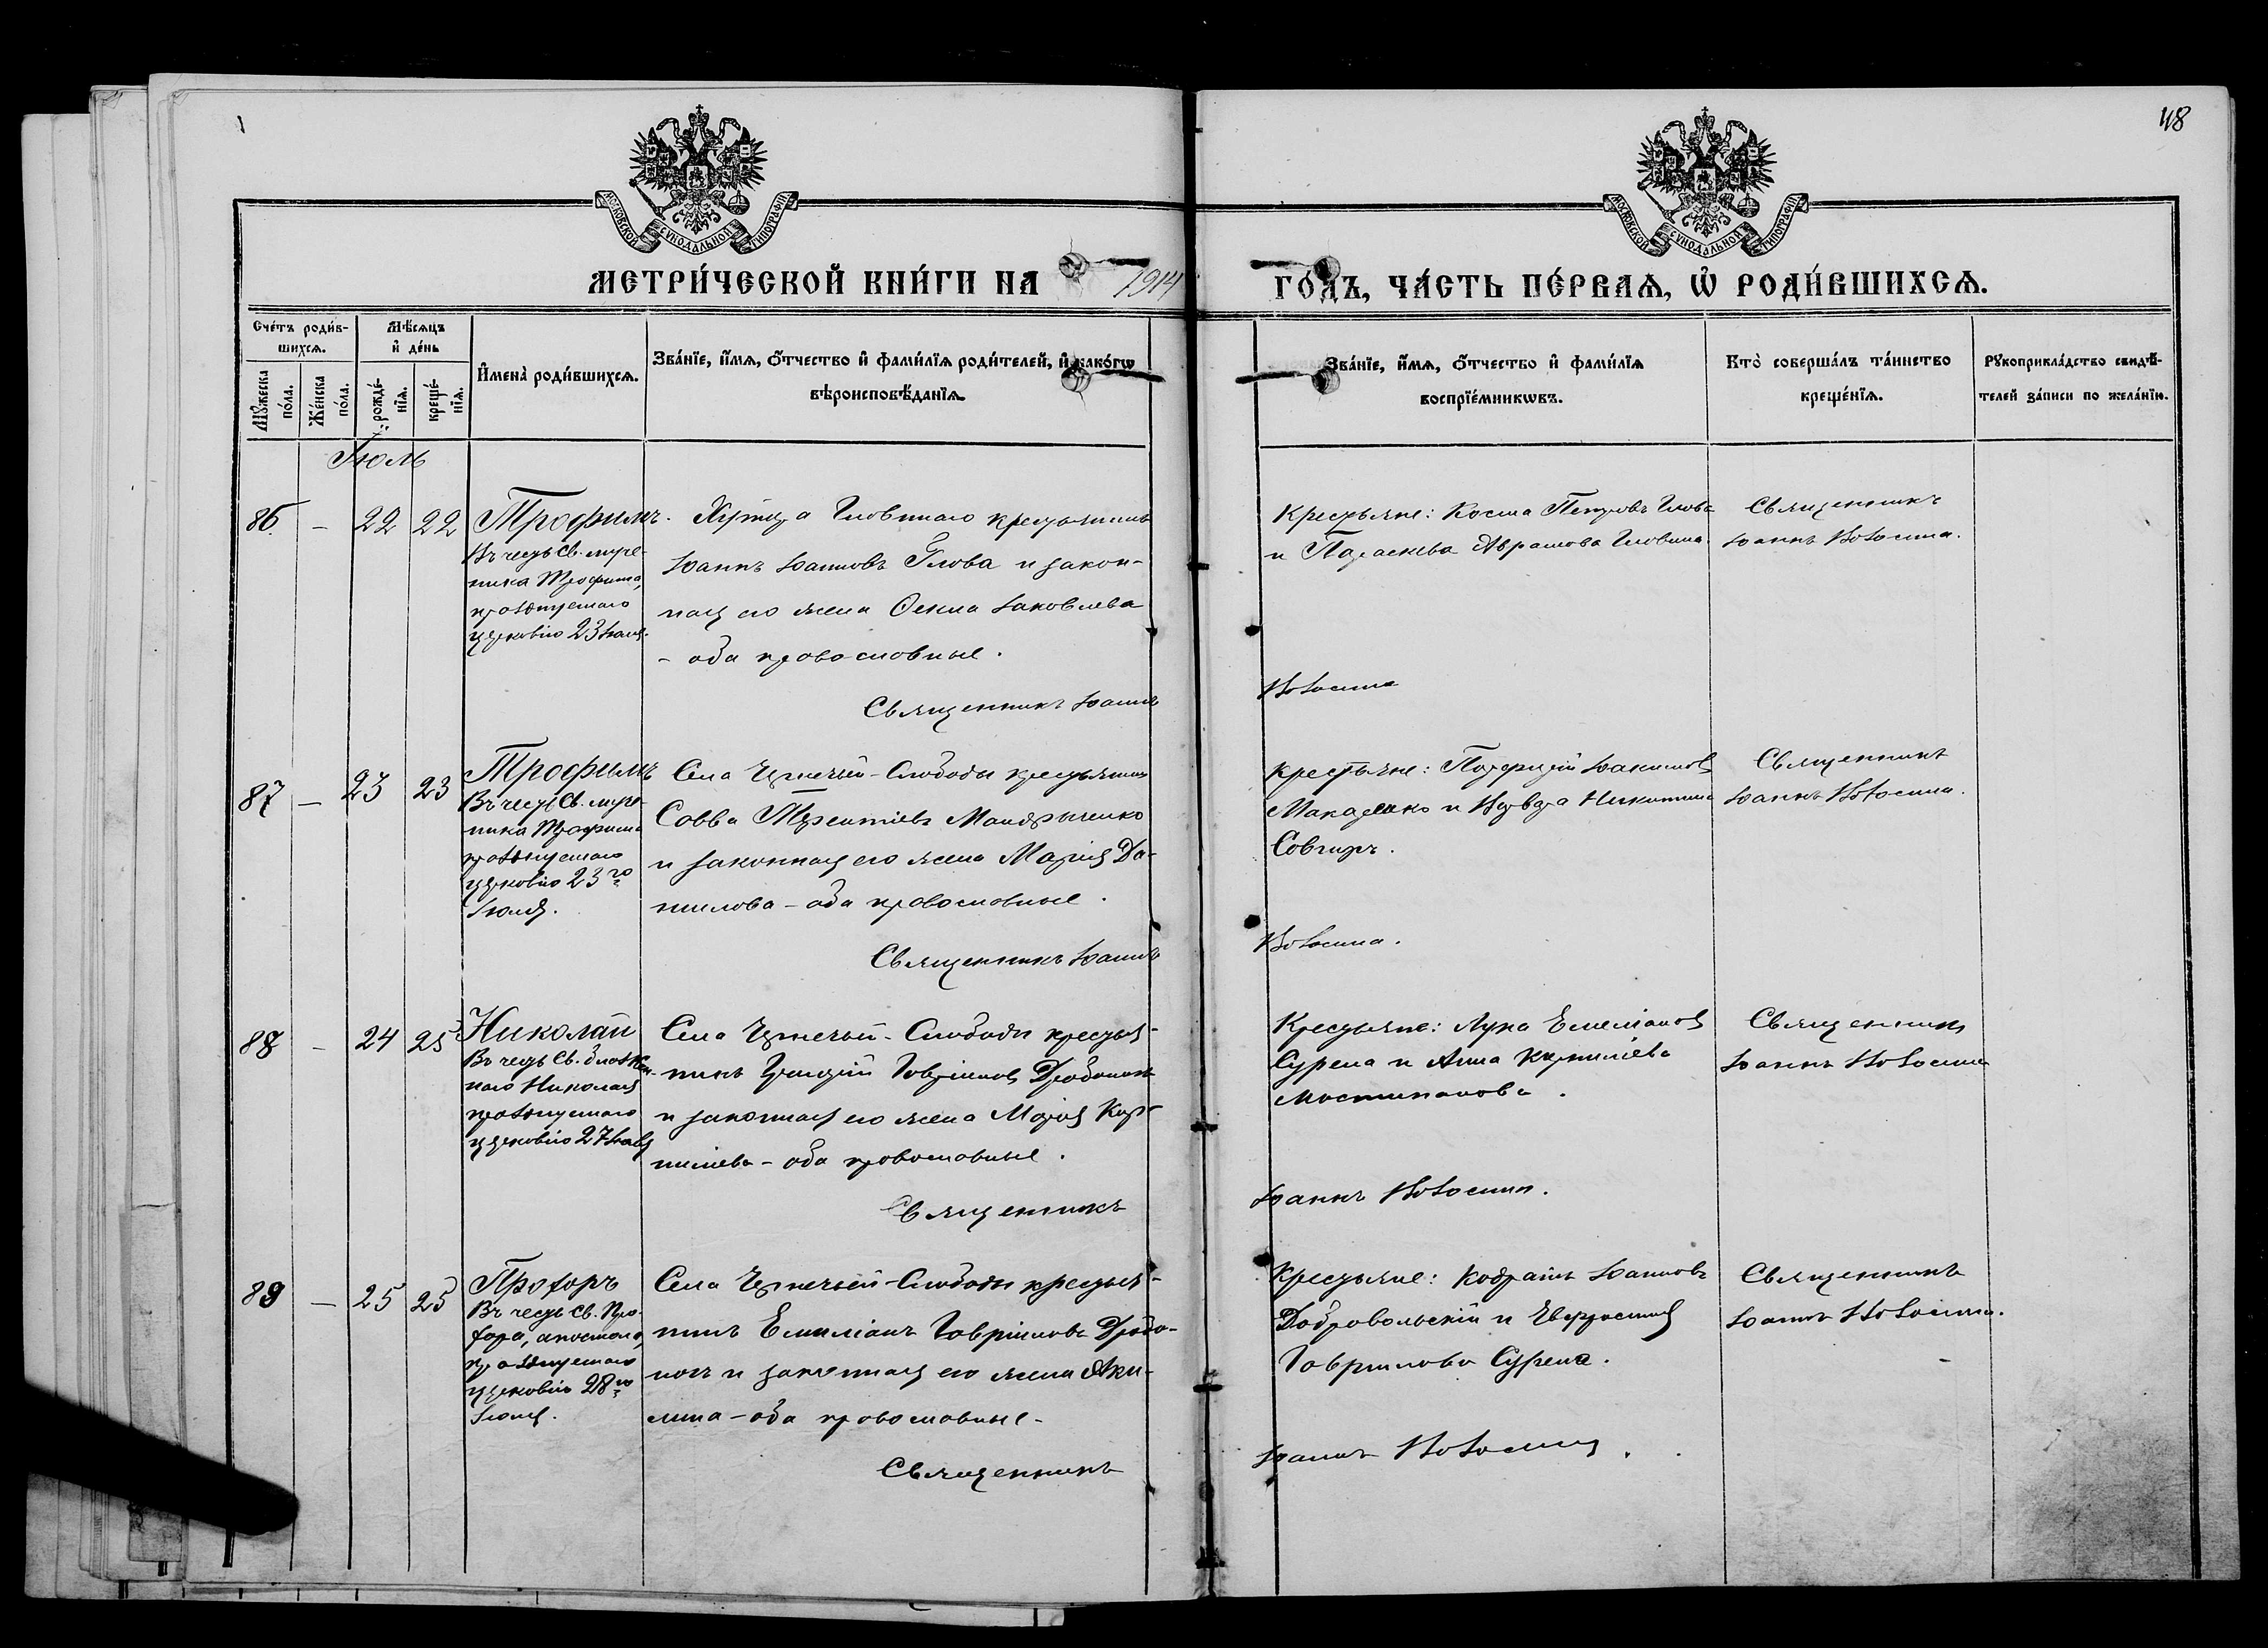 48
МОСКОВСКОЙ СУНОДАЛЬНОЙ ТИПОГРАФІИ
МОСКОВСКОЙ СУНОДАЛЬНОЙ ТИПОГРАФІИ
МЕТРИ́ЧЕСКОЙ КНИ́ГИ НА 1914 ГО́ДЪ, ЧА́СТЬ ПЕ́РВАѦ, Ѡ҆ РОДИ́ВШИХСѦ.
Сче́тъ роди́в-
шихсѧ.
Мꙋ́жеска по́ла.
Же́нска по́ла.
Мѣ́сѧцъ
и҆ де́нь
рожде́-
нїѧ.
креще́-
нїѧ.
И҆мена̀ роди́вшихсѧ.
Зва́нїе, и҆́мѧ, ѻ҆́тчество и҆ фами́лїѧ роди́телей, и҆ како́гѡ
вѣроисповѣ́данїѧ.
Зва́нїе, и҆́мѧ, ѻ҆́тчество и҆ фами́лїѧ
воспрїе́мникѡвъ.
Кто̀ соверша́лъ та́инство
креще́нїѧ.
Рꙋкоприкла́дство свидѣ́-
телей за́писи по жела́нїю.
Іюль
86. - 22 22
Трофимъ.
Въ честь Св. муче-
ника Трофима,
празднуемаго
церковію 23 Іюля.
Хутора Гловинаго крестьянинъ
Іоаннъ Іоанновъ Глова и закон-
ная его жена Іаковлева
- оба православные.
Священникъ Іоаннъ
Крестьяне: Косма Петровъ Глова
и Параскева Аврамова Гловина.
Священникъ
Іоаннъ
87 - 23 23
Трофимъ
Въ честь Св. муче-
ника Трофима
празднуемаго
церковію 23го
Іюля.
Села Чернечьей-Слободы крестьянинъ
Савва Терентіевъ Мандрыченко
и законная его жена Марія Да-
нилова - оба православные.
Священникъ Іоаннъ
Крестьяне: Порфирій Іакимовъ
Макаренко и Никитина
Священникъ
Іоаннъ
88 - 24 25
Николай
Въ честь Св. блажен-
наго Николая
празднуемаго
церковію 27 Іюля
Села Чернечьей-Слободы крестья-
нинъ Григорій Гавріиловъ
и законная его жена Марія Кор-
нилиева - оба православные.
Священникъ
Крестьяне: Лука Емеліановъ
Сурела и Анна Корниліева
Священникъ
Іоаннъ
Іоаннъ
89 - 25 25
Прохоръ
Въ честь Св. Про-
хора, апостола,
празднуемаго
церковію 28го
Іюля.
Села Чернечьей-Слободы крестья-
нинъ Емиліанъ Гавріиловъ
и законная его жена Аки-
лина - оба православные -
Священникъ
Крестьяне: Кодратъ Іоанновъ
Добровольскій и Евфросинія
Гаврилова Сурела.
Священникъ
Іоаннъ
Іоаннъ